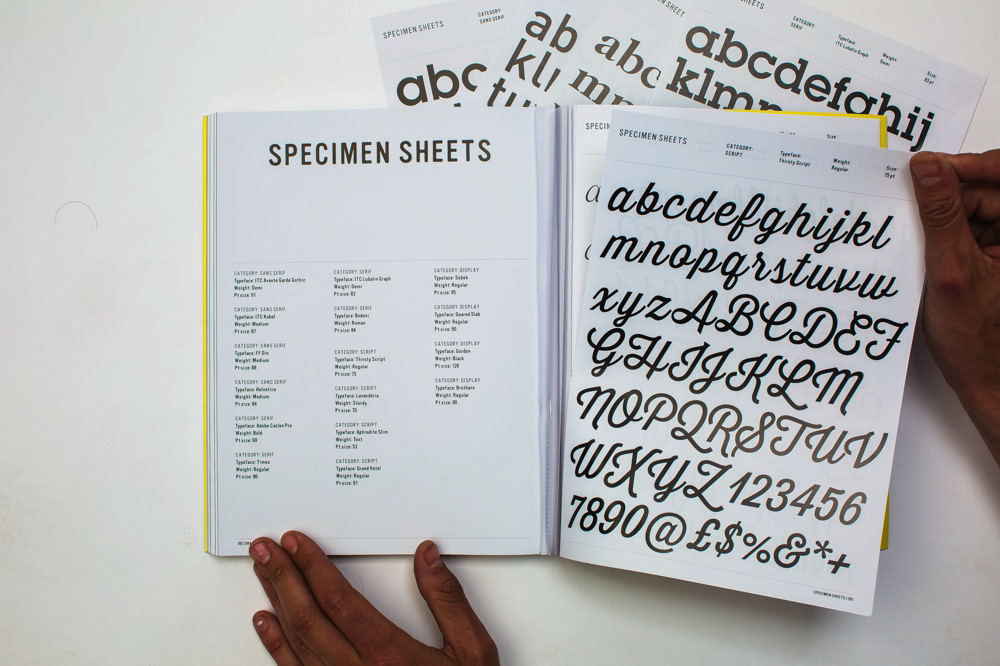 SPECIMEN SHEETS
CATEGORY:
SANS SERIF
abc
ab
kl
tu
abc
mn
SPECIMEN SHEETS
CATEGORY:
SERIF
Typeface:
ITC Lubalin Graph
Weight:
Demi
Size:
83pt
abcdefghij
klmn
SPECIMEN SHEETS
CATEGORY: SANS SERIF
Typeface: ITC Avante Garde Gothic
Weight: Demi
Pt size: 91
CATEGORY: SANS SERIF
Typeface: ITC Kabel
Weight: Medium
Pt size: 87
CATEGORY: SANS SERIF
Typeface: FF Din
Weight: Medium
Pt size: 88
CATEGORY: SANS SERIF
Typeface: Helvetica
Weight: Medium
Pt size: 84
CATEGORY: SERIF
Typeface: Adobe Caslon Pro
Weight: Bold
Pt size: 89
CATEGORY: SERIF
Typeface: Times
Weight: Regular
Pt size: 90
CATEGORY: SERIF
Typeface: ITC Lubalin Graph
Weight: Demi
Pt size: 83
CATEGORY: SERIF
Typeface: Bodoni
Weight: Roman
Pt size: 84
CATEGORY: SCRIPT
Typeface: Thirsty Script
Weight: Regular
Pt size: 75
CATEGORY: SCRIPT
Typeface: Lavanderia
Weight: Sturdy
Pt size: 70
CATEGORY: SCRIPT
Typeface: Aphrodite Slim
Weight: Text
Pt size: 53
CATEGORY: SCRIPT
Typeface: Grand Hotel
Weight: Regular
Pt size: 91
CATEGORY: DISPLAY
Typeface: Subak
Weight: Regular
Pt size: 95
CATEGORY: DISPLAY
Typeface: Geared Slab
Weight: Regular
Pt size: 90
CATEGORY: DISPLAY
Typeface: Gordon
Weight: Black
Pt size: 128
CATEGORY: DISPLAY
Typeface: Brothers
Weight: Regular
Pt size: 96
Size:
a
SPECIMEN SHEETS
CATEGORY:
SCRIPT
Typeface:
Thirsty Script
Weight:
Regular
Size:
75pt
abcdefghijkl
mnopqrstuvw
xyzABCDEF
GHIJKLM
NOPQRSTUV
WXYZ123456
7890@£$%&*+
SPECIMEN SHEETS | 201